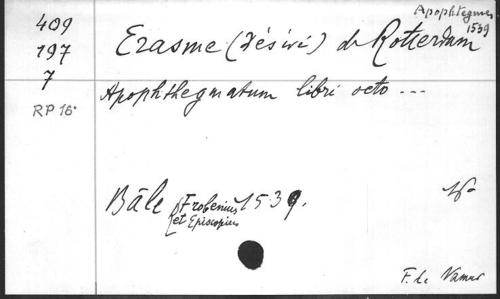 Apophtegmes
1539
409
197
7
RP 16°
Erasme (Désiré) de Rotterdam
Apophthegmatum libri octo ...
Bâle Frobenius et Episcopius 1539.
F. de Namur